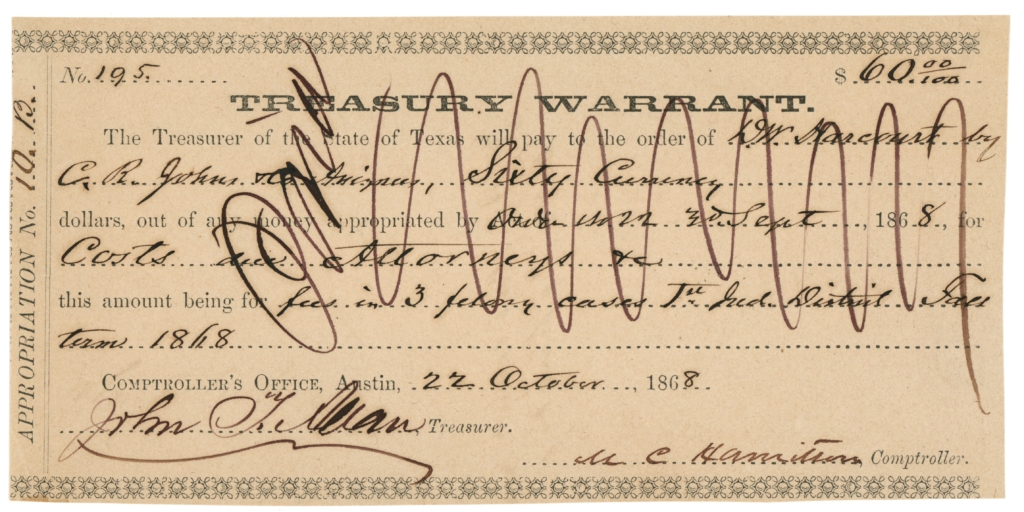 No. 195. $ 60 00/100
TREASURY WARRANT.
The Treasurer of the State of Texas will pay to the order of D.W. Harcourt by
C. R. Johns & Co Assignees, Sixty Currency
dollars, out of any money appropriated by Order No. 3d Sept, 1868, for
Costs due Attorneys &c
this amount being for fees in 3 felony cases 1st Jud. District Fall
term 1868
COMPTROLLER'S OFFICE, Austin, 22 October, 1868.
John T. Allan Treasurer.
M C Hamilton Comptroller.
APPROPRIATION No. 10. 13.
Paid